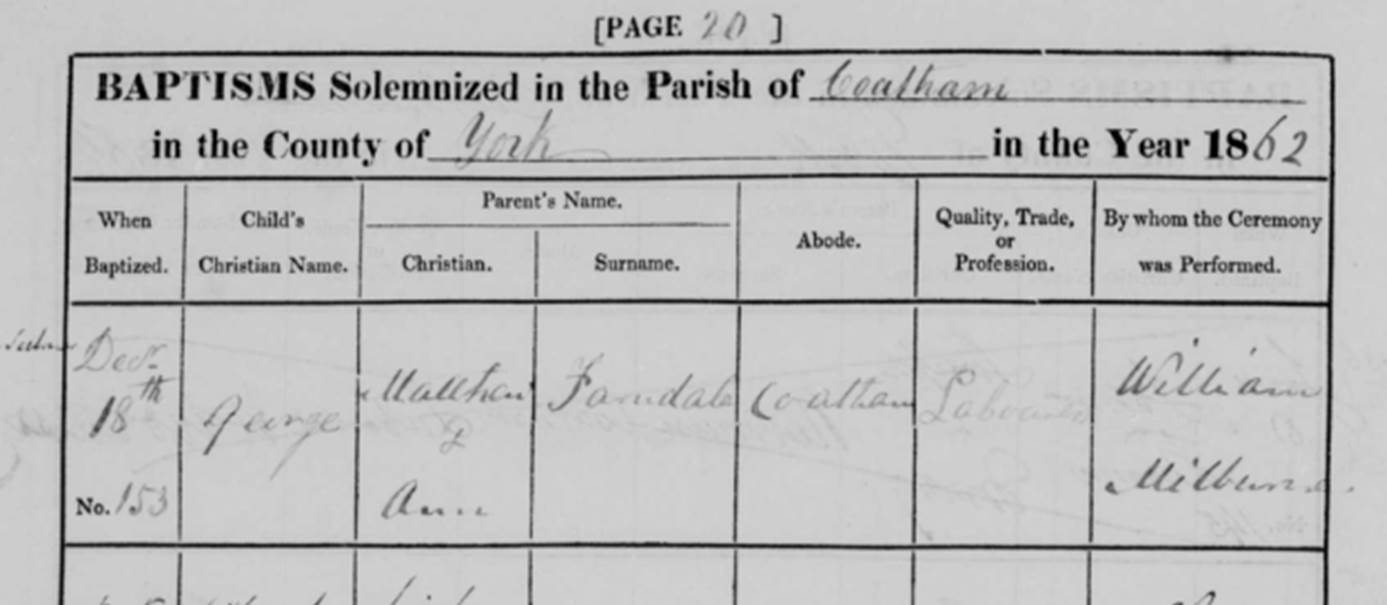 [PAGE 20 ]
BAPTISMS Solemnized in the Parish of Coatham
in the County of York in the Year 1862
When Baptized.
Child's Christian Name.
Parent's Name.
Christian.
Surname.
Abode.
Quality, Trade, or Profession.
By whom the Ceremony was Performed.
Decr.
18th
No. 153
George
Matthew
&
Ann
Farndale
Coatham
Labourer
William
Milburn